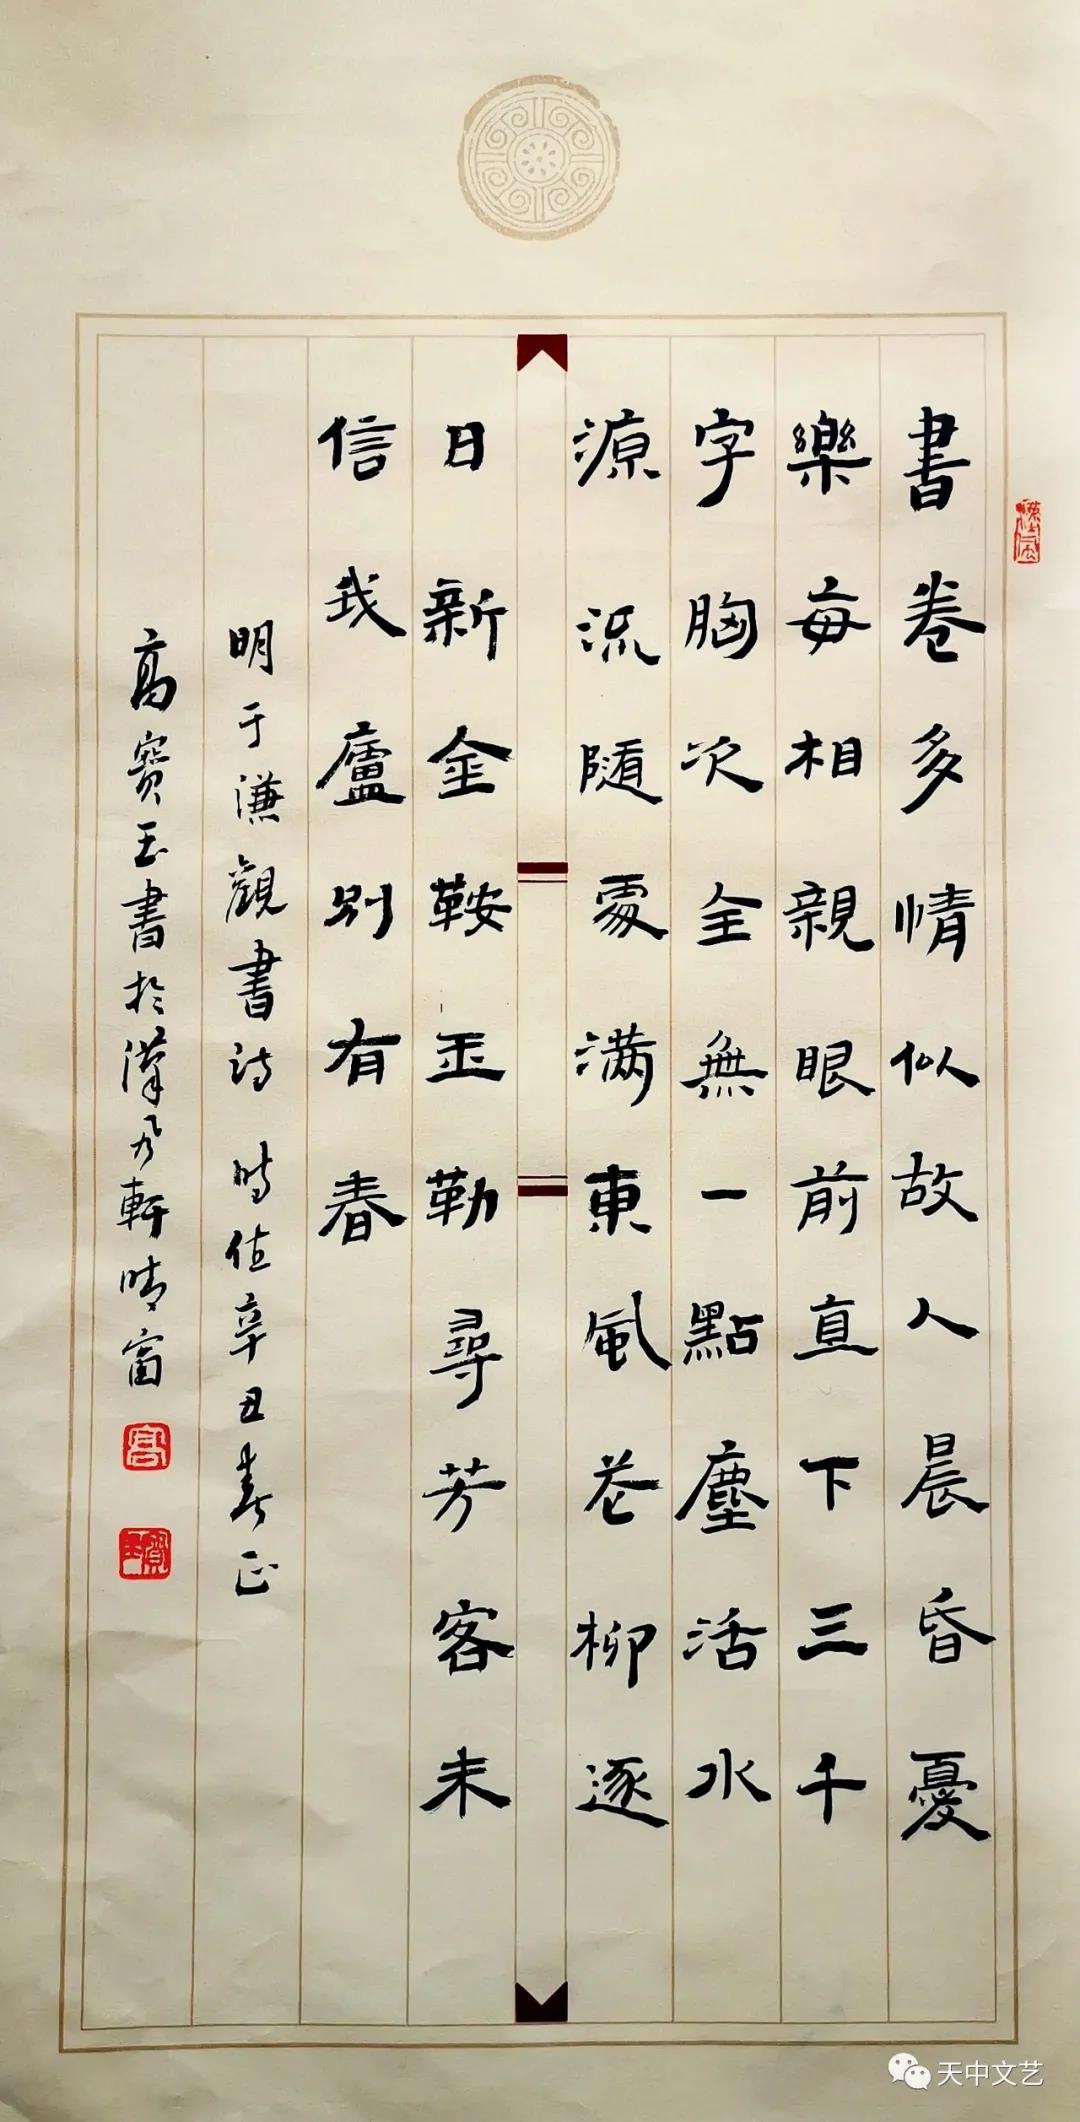 書卷多情似故人晨昏憂
樂每相親眼前直下三千
字胸次全無一點塵活水
源流隨處满東風花柳逐
日新金鞍玉勒尋芳客未
信我廬別有春
明于谦觀書詩 時值辛丑春正
高寶玉書於漢乃軒晴窗
高
寶玉
天中文艺